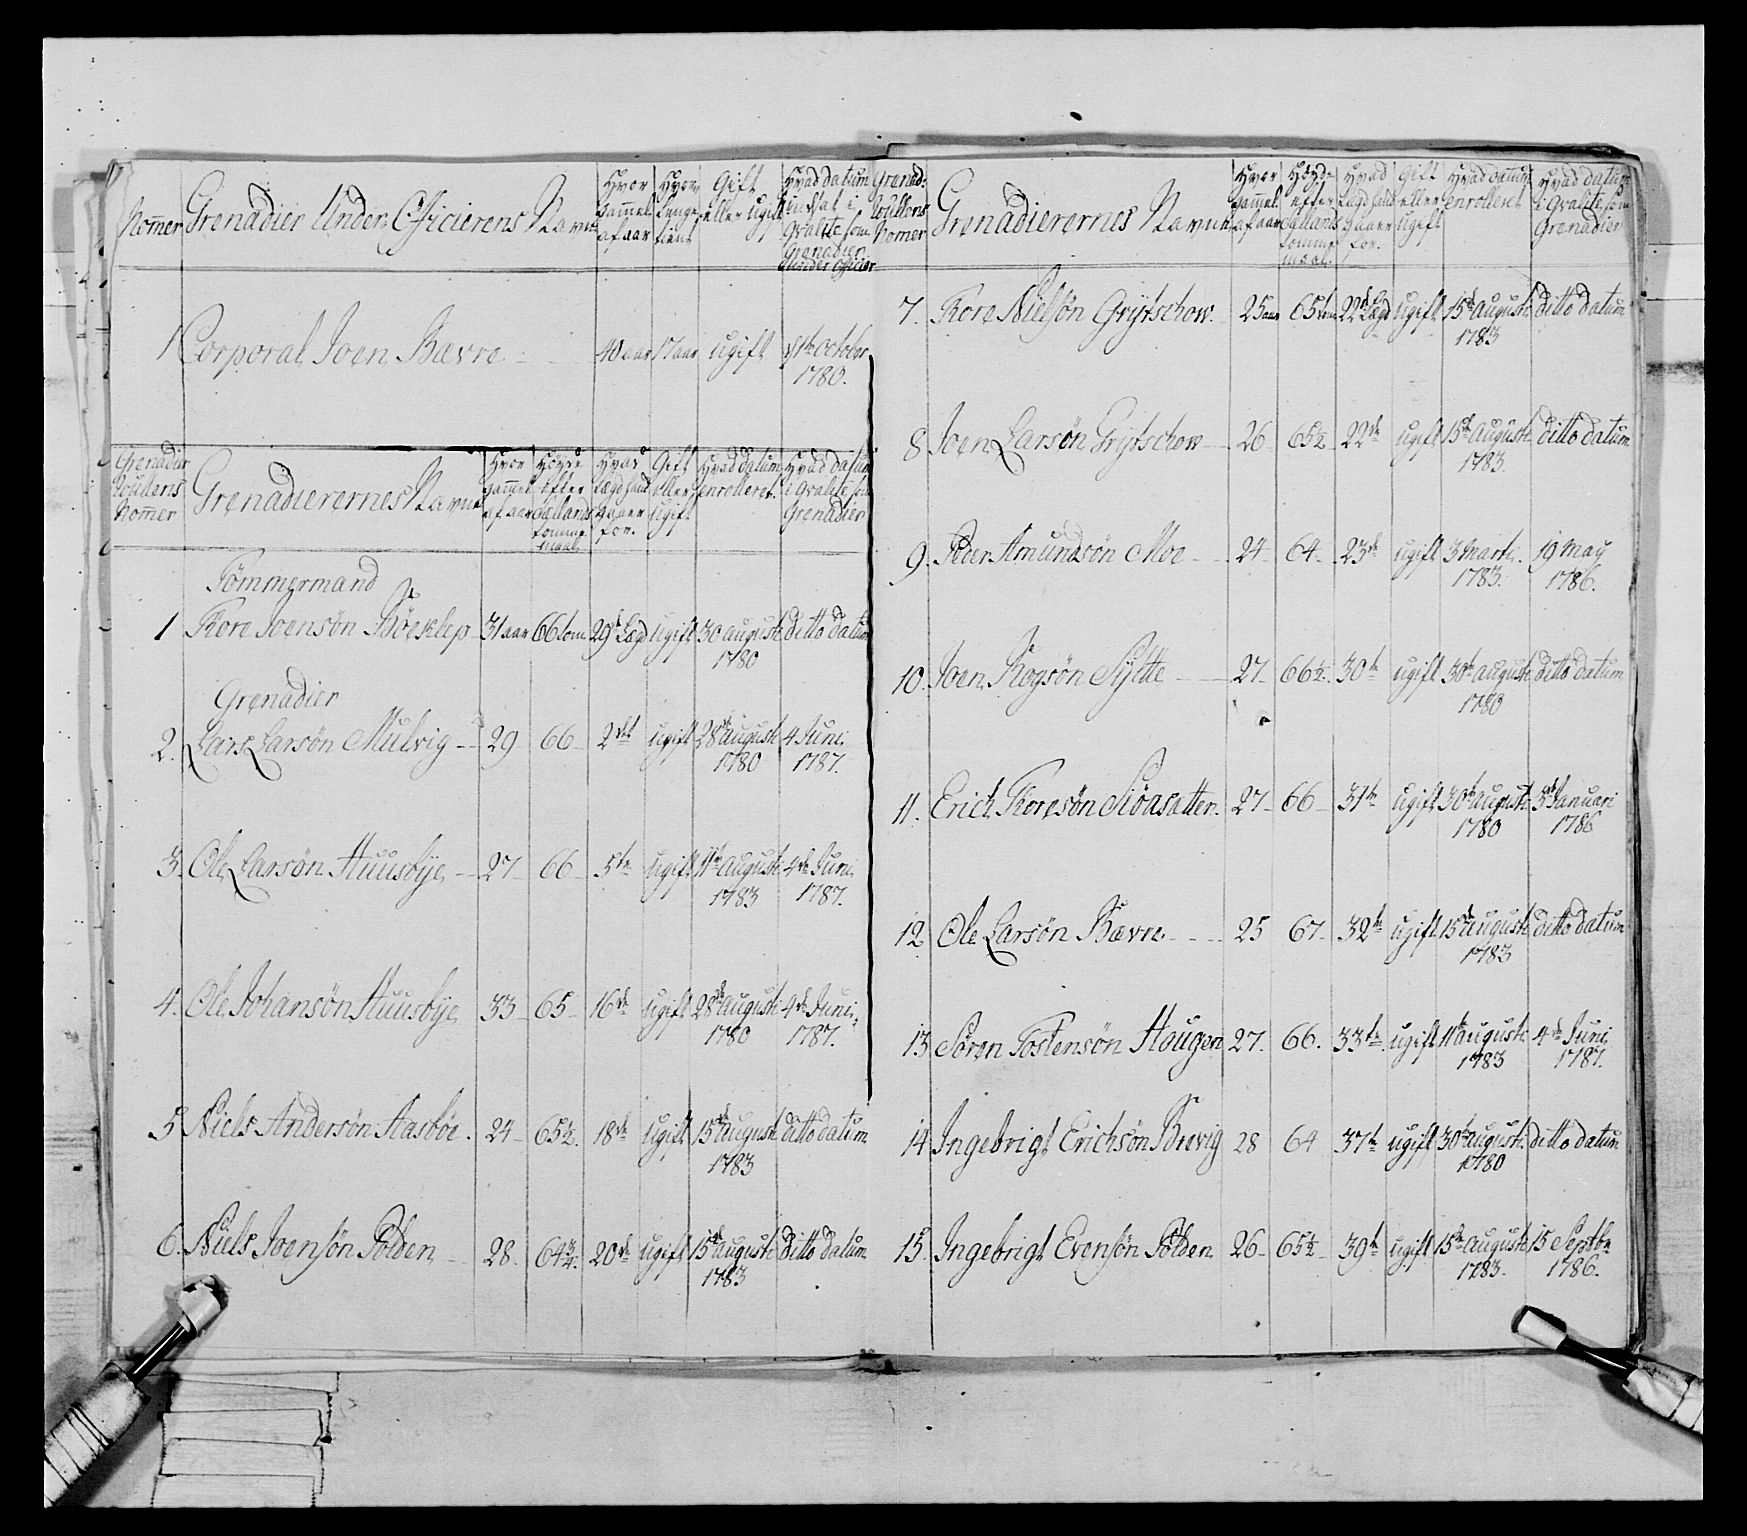 Nomer Grenadier Under Officierens Navne Hvor gammel af aar Hvor lenge tient Gift eller ugift Hvad datum indsat i Qvalite som Grenadier Under Officier
1 Corporal Joen Bævre 40 aar 17 aar ugift 1te October
1780.
Grenadier Rullens Nomer Grenadierernes Navne Hvor gammel af aar Höyde efter Siællands tomme maal Hvad Lægd hand staaer for. Gift eller ugift Hvad datum enrolleret. Hvad datum i Qvalite som Grenadier
Tömmermand
1 Tore Joensön 31 aar 66 tom 29de Lægd ugift 30 augusti ditto datum
1780
Grenadier
2. Lars Larsön Mulvig 29 66 2det ugift 28de augusti 4 Juni
1780 1787.
3. Ole Larsön Huusbye 27 66 5te ugift 11te augusti 4de Juni
1783 1787.
4. Ole Johansön Huusbye 33 65 16de ugift 28de augusti 4de Juni
1780 1787.
5 Niels Andersön Aasböe. 24 65½. 18de ugift 15de augusti ditto datum
1783
6. Niels Joensön Polden 28. 64¾. 20de ugift 15de augusti ditto datum
1783
Grenad: Rullens Nomer Grenadierernes Navne Hvor gammel af aar Höyde efter Siællands tomme maal. Hvad Lægd hand staaer for. Gift eller ugift Hvad datum enrolleret Hvad datum i Qvalite som Grenadier
7. Tore Nielsön Grytschow 25 aar 65 tom 22de Lægd ugift 15de augusti ditto datum
1783
8 Joen Larsön Grytschow 26 65½ 22de ugift 15de augusti ditto datum
1783.
9. Peder Amundsön Moe 24 64 23de ugift 3 Marti. 19 May
1783. 1786.
10. Joen Sylte 27 66½. 30te ugift 30te augusti ditto datum
1780
11. Erich Toresön 27 66 31te ugift 30te augusti 3de Januari
1780 1786
12 Ole Larsön Bævre 25 67 32te ugift 15de augusti ditto datum
1783
13 Sören Tostensön Hougen 27. 66. 33te ugift 11te augusti 4de Juni
1783 1787.
14 Ingebrigt Erichsön Brevig 28 64 37te ugift 30te augusti ditto datum
1780
15. Ingebrigt Evensön Polden 26 65½ 39te ugift 15de augusti 15 Septbr
1783. 1786.